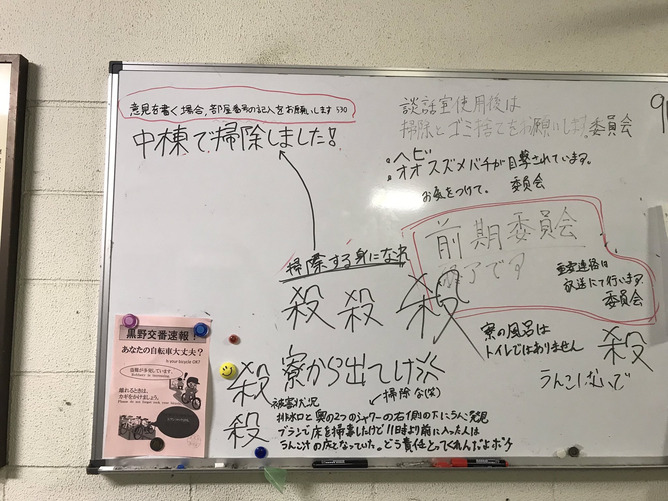 意見を書く場合、部屋番号の記入をお願いします 530
中棟で掃除しました!
談話室使用後は
掃除とゴミ捨てをお願いします。委員会
・ヘビ
・オオスズメバチが目撃されています。
お気をつけて。 委員会
前期委員会
終了です
重要連絡は
放送にて行います。
委員会
掃除する身になれ
殺 殺 殺
寮の風呂は
トイレではありません
殺
うんこ
殺 寮から出てけ
掃除な(笑)
殺
被害状況
排水口と奥の2つのシャワーの右側の下にうんこ発見
ブラシで床を掃毒したけど11時より前に入った人は
うんこ汁の床となっていた。どう責任とってくれんだよボケ
黒野交番速報!
あなたの自転車大丈夫?
Is your bicycle OK?
自転車が多発しています。
離れるときは、
カギをかけましょう。